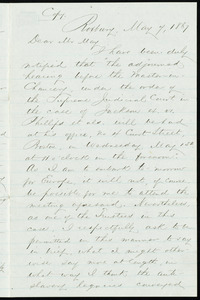 Copy
Roxbury, May 7, 1867
Dear Mr May,
I have been duly
notified that the adjourned
hearing before the Master in
Chancery, under the order of
the Supreme Judicial Court in
the case of Jackson et al. vs
Phillips et als. will be had
at his office, No. 4 Court Street,
Boston, on Wednesday, May
at o'clock in the forenoon.
As I am to embark to-morrow
for Europe, it will not, of course,
be possible for me to attend the
meeting aforesaid. Nevertheless,
as one of the Trustees in this
case, I respectfully ask to be
permitted in this manner to say
in brief, what I might other-
wise say more at length, in
what way I think the anti-
slavery bequest conveyed